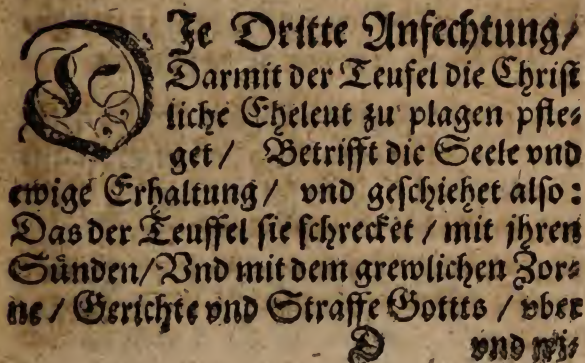 DJe Dritte Anfechtung/
Darmit der Teufel die Christ
liche Eheleut zu plagen pfle⸗
get/ Betrifft die Seele vnd
ewige Erhaltung/ vnd geschiehet also:
Das der Teuffel sie schrecket/ mit jhren
Sünden/ Vnd mit dem grewlichen Zor⸗
ne/ Gerichte vnd Straffe Gottts/ vber
D vnd wi⸗